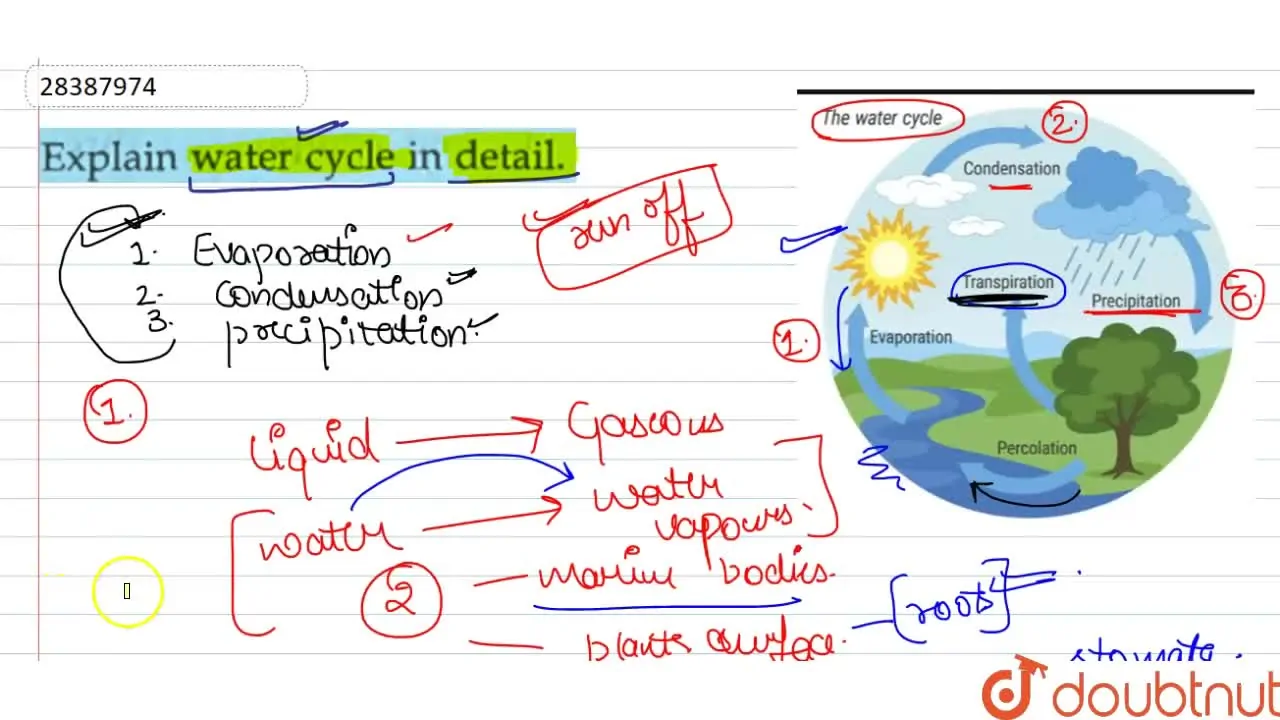 28387974
Explain water cycle in detail.
1. Evaporation
2. condensation
3. precipitation
run off
The water cycle
2.
Condensation
Transpiration
Precipitation
3.
1.
Evaporation
Percolation
1.
Liquid → Gaseous
water → water
vapours.
2
— marine bodies.
— plants surface. — [roots]
stomata.
doubtnut